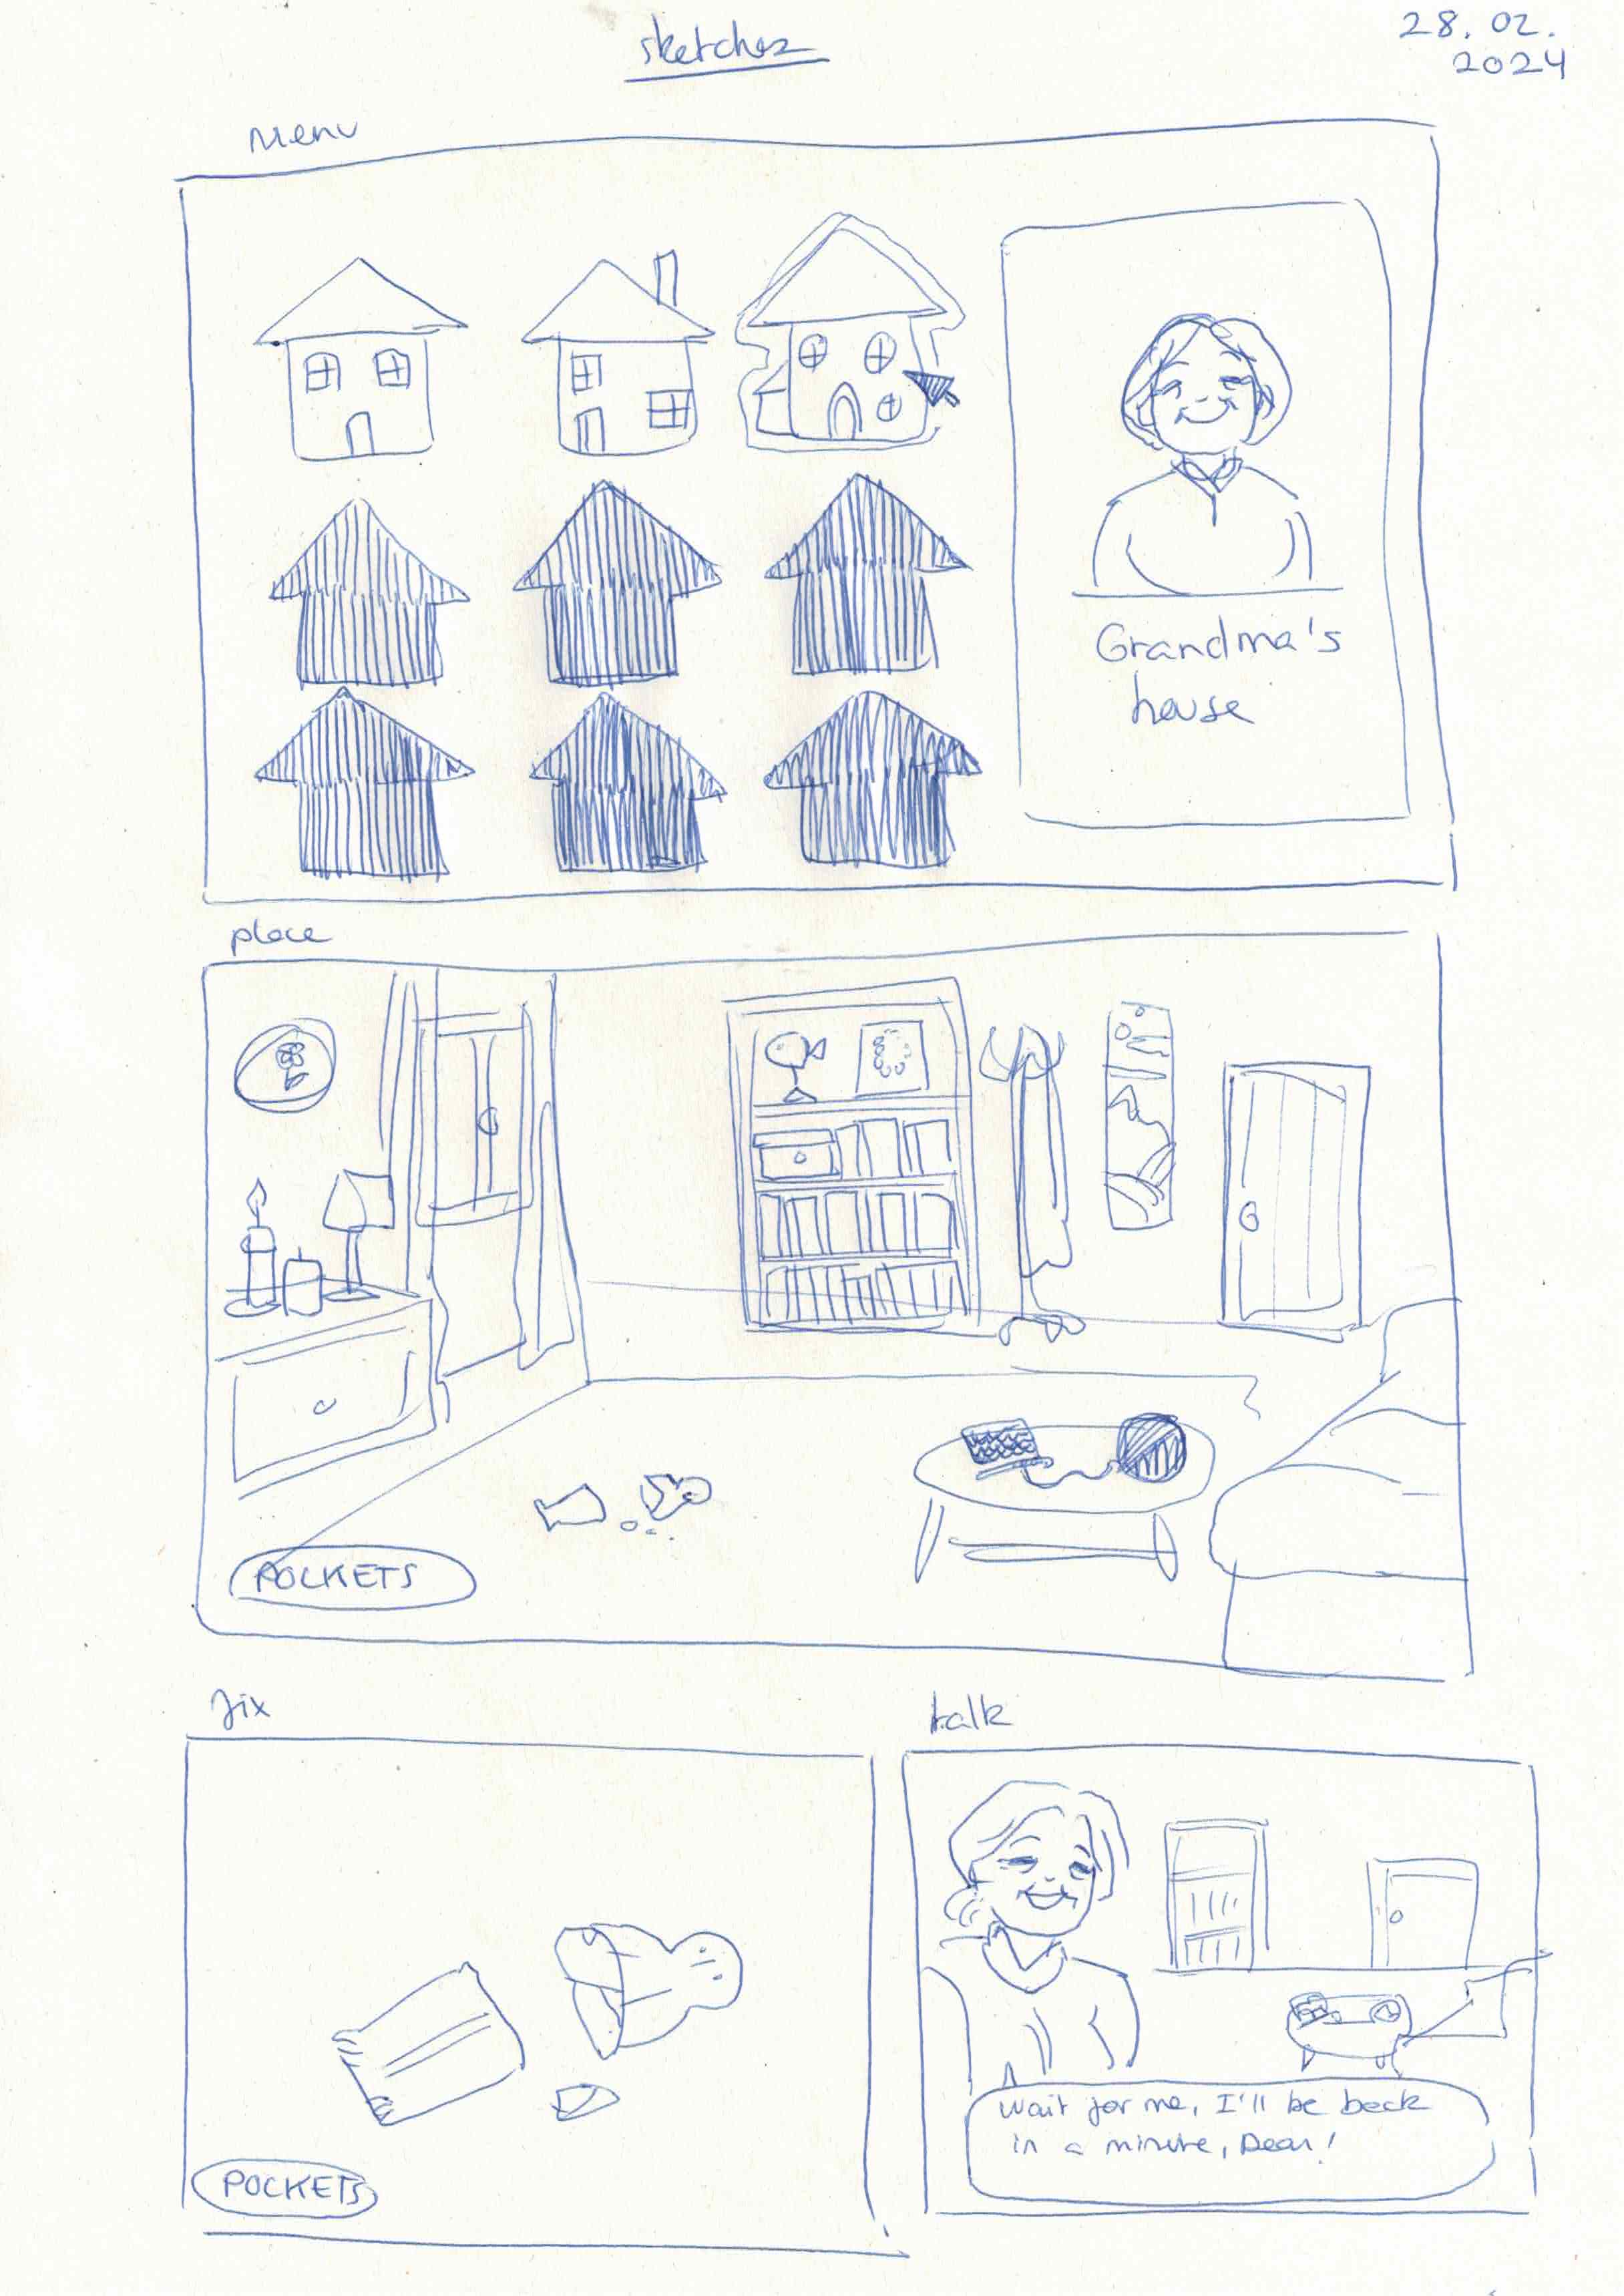 sketches
28. 02.
2024
Menu
Grandma's
house
place
POCKETS
fix
talk
Wait for me, I'll be back
in a minute, Dear!
POCKETS